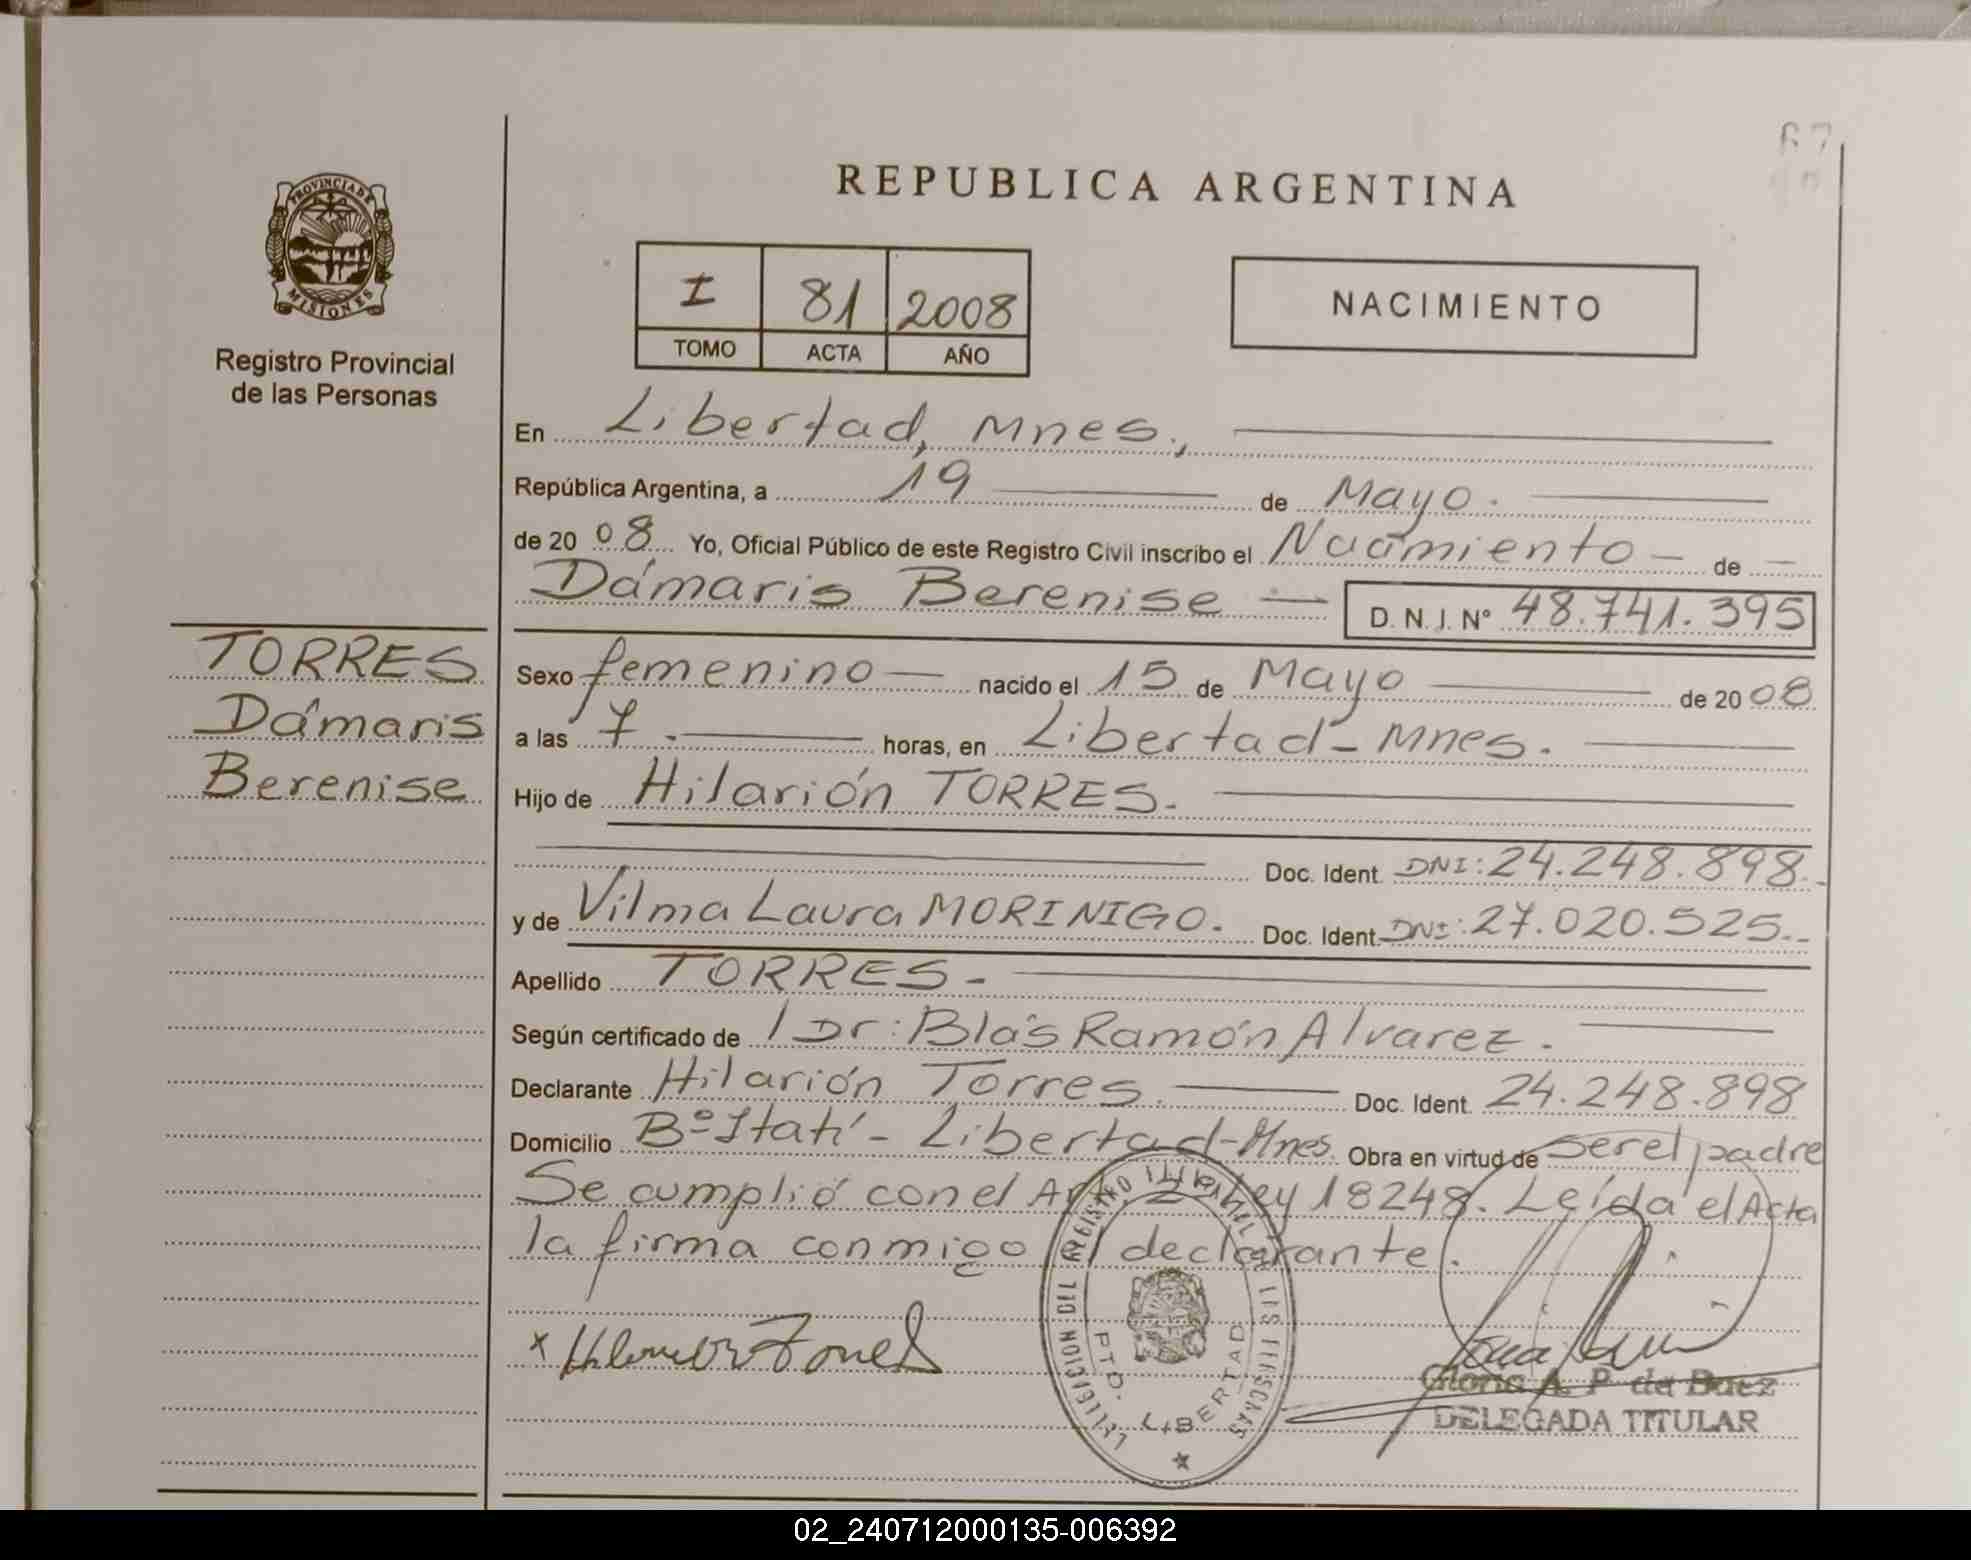 67
REPUBLICA ARGENTINA
PROVINCIA DE
MISIONES
Registro Provincial
de las Personas
I 81 2008
TOMO ACTA AÑO
NACIMIENTO
En Libertad, Mnes.,
República Argentina, a 19 de Mayo.
de 20 08 Yo, Oficial Público de este Registro Civil inscribo el Nacimiento de
Dámaris Berenise D. N. I. N° 48.741.395
TORRES
Dámaris
Berenise
Sexo femenino nacido el 15 de Mayo de 20 08
a las 7. horas, en Libertad - Mnes.
Hijo de Hilarión TORRES.
Doc. Ident. DNI: 24.248.898.
y de Vilma Laura MORINIGO. Doc. Ident. DNI: 27.020.525.
Apellido TORRES.
Según certificado de Dr: Blás Ramón Alvarez.
Declarante Hilarión Torres. Doc. Ident. 24.248.898
Domicilio B° Itatí - Libertad - Mnes. Obra en virtud de ser el padre
Se cumplió con el Art. 2 Ley 18248. Leída el Acta
la firma conmigo el declarante.
x
DELEGACION DEL REGISTRO DE LAS PERSONAS
PTO. LIBERTAD
Gloria A. P. de Baez
DELEGADA TITULAR
02_240712000135-006392